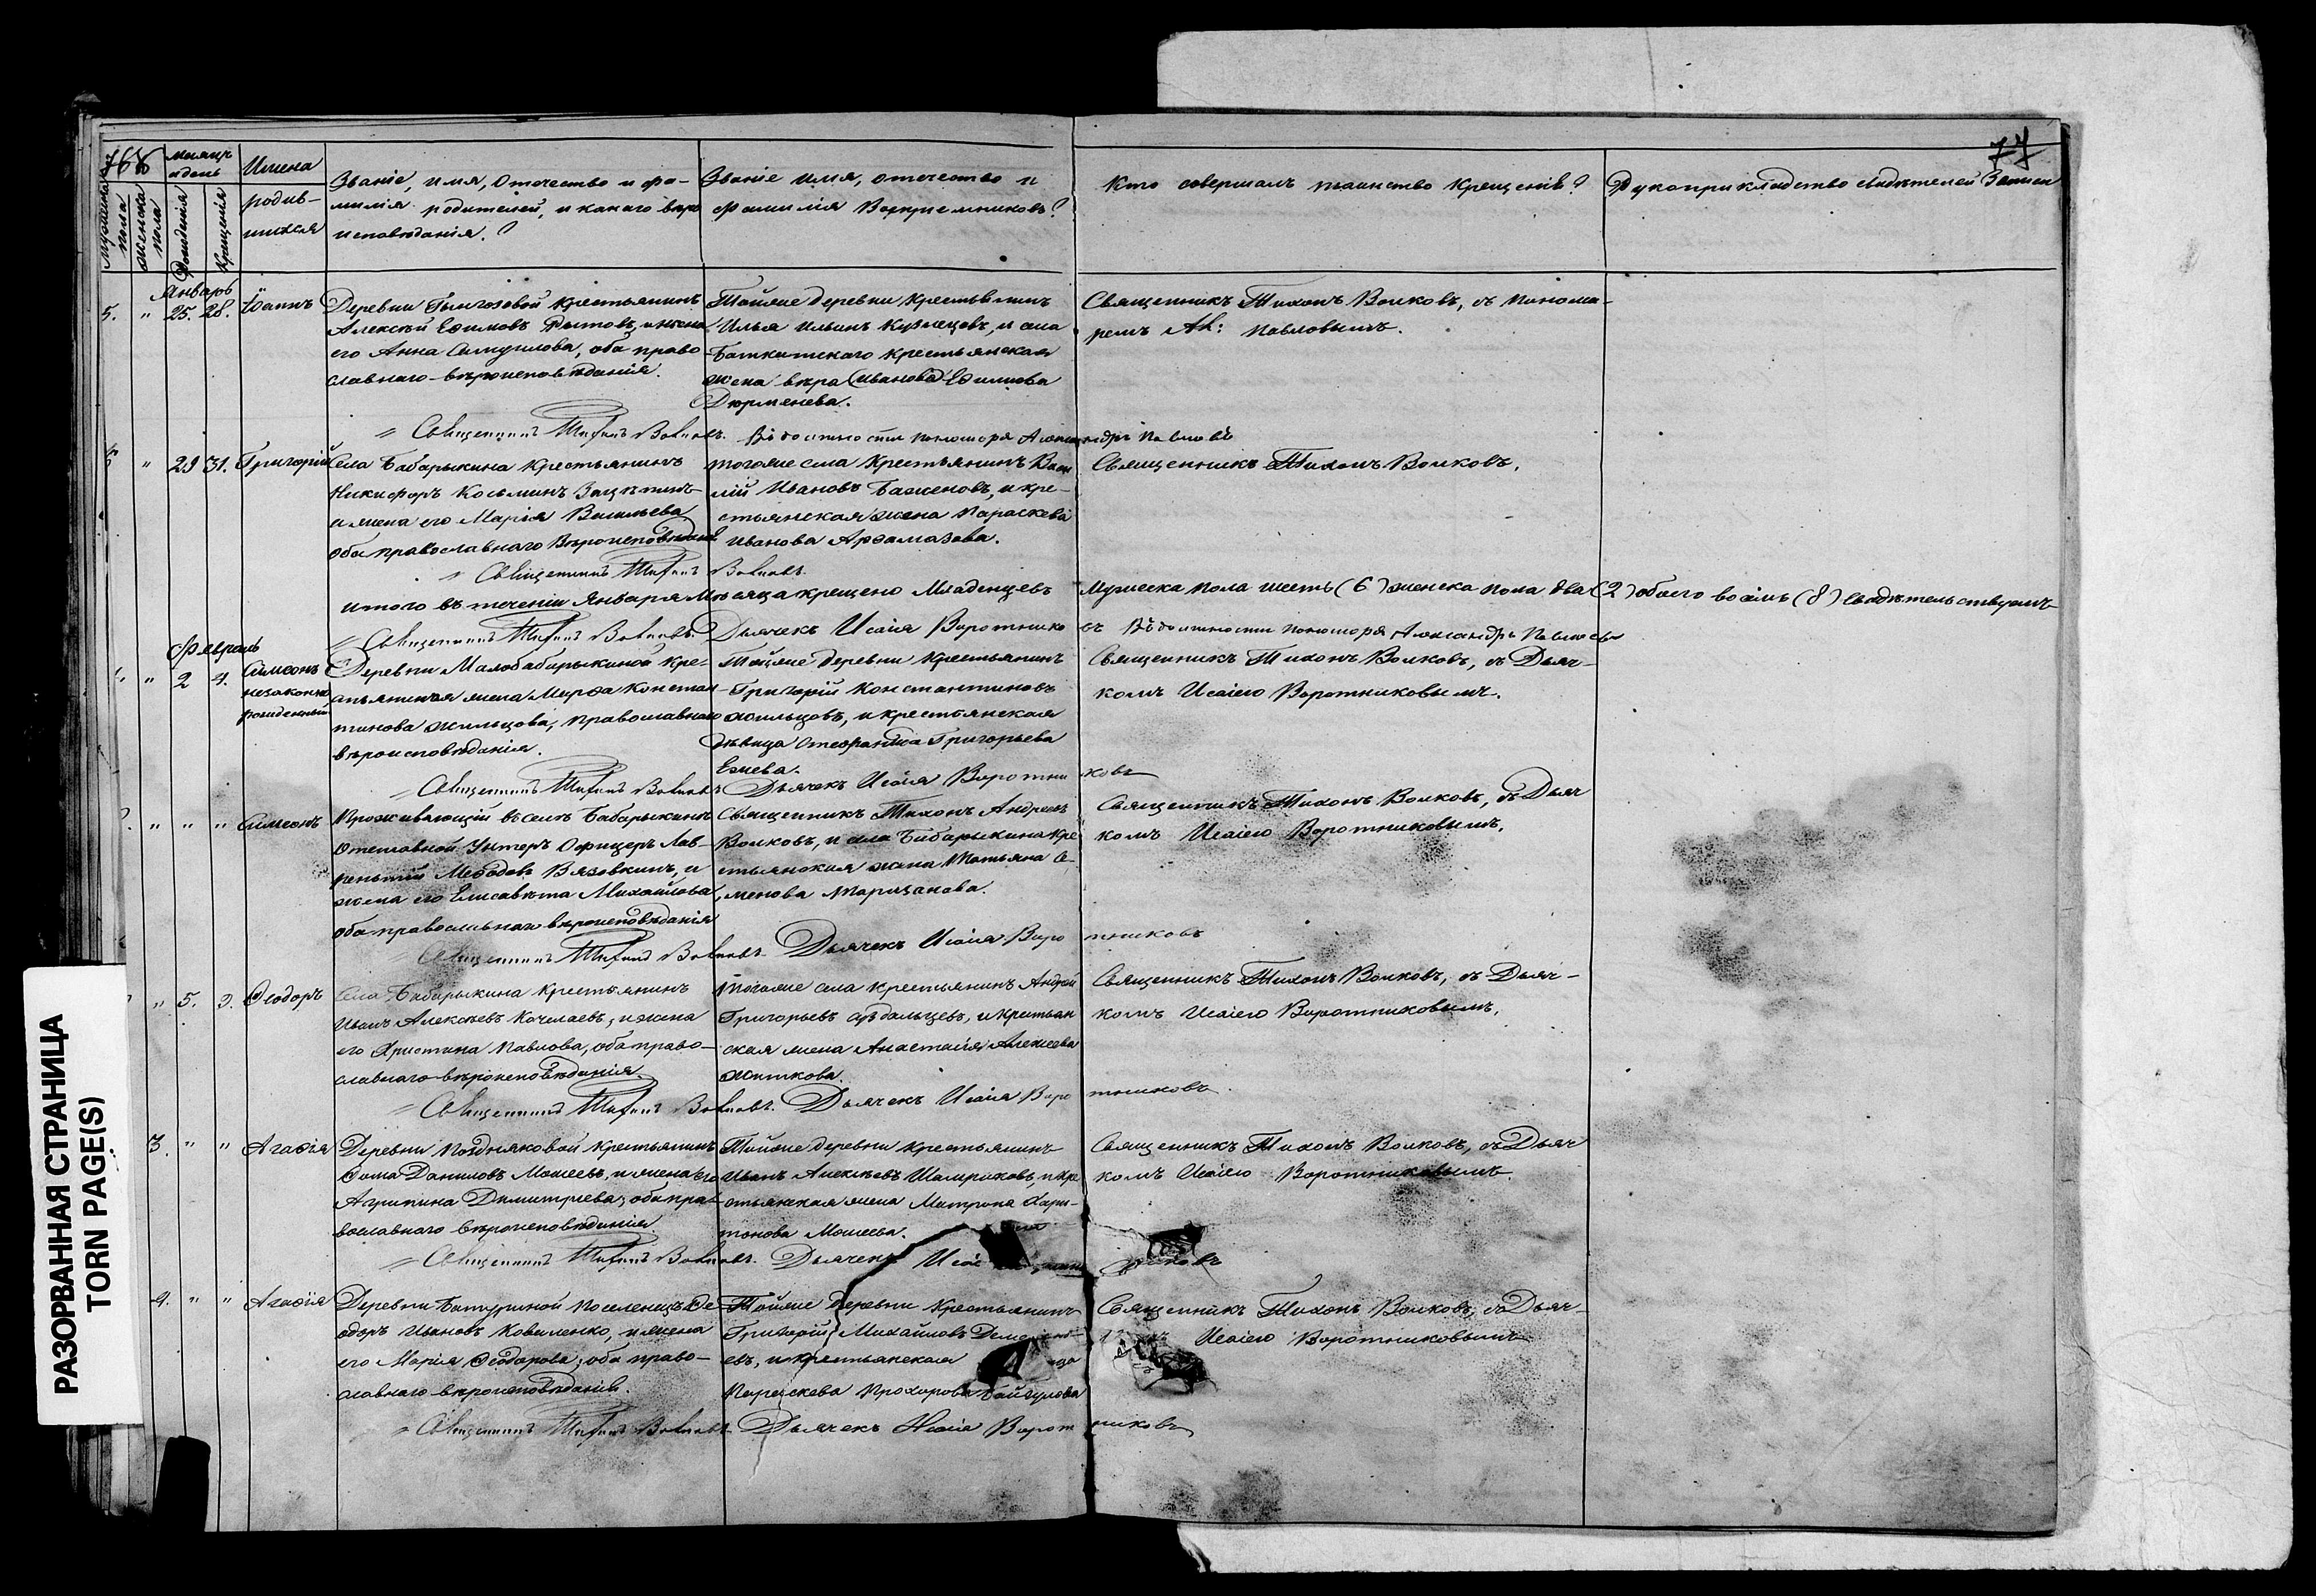 77
мѣсяцъ и день
Имена родив-
шихся
Званіе, имя, отечество и фа-
милія родителей, и какаго вѣро
исповѣданія?
Званіе имя, отечество и
фамилія Воспріемниковъ?
Кто совершалъ таинство крещенія?
Рукоприкладство свидѣтелей Записи
Мужеска пола
женска пола
Рожденія
Крещенія
Январь
5. " 25. 28. Іоаннъ
Деревни крестьянинъ
Алексѣй Еѳимовъ и жена
его Анна оба право
славнаго вѣроисповѣданія.
Тойже деревни крестьянинъ
Илья Ильинъ Кузнецовъ, и села
крестьянская
жена Вѣра (Иванова) Еѳимова
Дюрменева.
Священникъ Тихонъ Волковъ, съ понома-
ремъ Ал: Павловымъ.
Священникъ Тихонъ Волковъ. Въ должности пономаря Александръ Павловъ
" 29 31. Григорій
Села Бабарыкина крестьянинъ
Никифоръ Косьминъ
и жена его Марія Васильева
оба православнаго Вѣроисповѣданія
тогоже села Крестьянинъ Васи
лій Ивановъ Баженовъ, и кре-
стьянская жена Параскева
Иванова Арзамазова.
Священникъ Тихонъ Волковъ.
Священникъ Тихонъ Волковъ.
итого въ теченіи Января мѣсяца крещено Младенцевъ Мужеска пола шесть (6) женска пола два (2) обоего восемь (8) свидѣтельствуемъ
Священникъ Тихонъ Волковъ. Дьячекъ Исаія Воротниковъ Въ должности пономаря Александръ Павловъ
Февраль
" 2 4. Симеонъ
незаконно
рожденный
Деревни Малобабарыкиной кре-
стьянская жена Марѳа Констан-
тинова Жильцова, православнаго
вѣроисповѣданія.
Тойже деревни крестьянинъ
Григорій Константиновъ
Жильцовъ, и крестьянская
дѣвица Стефанида Григорьева
Ежева.
Священникъ Тихонъ Волковъ, съ Дьяч-
комъ Исаіею Воротниковымъ.
Священникъ Тихонъ Волковъ Дьячекъ Исаія Воротниковъ
" " " Симеонъ
Проживающій въ селѣ Бабарыкинѣ
Отставной Унтеръ Офицеръ Лав-
рентій Меѳодовъ Вязовкинъ, и
жена его Елисавета Михайлова,
оба православнаго вѣроисповѣданія
Священникъ Тихонъ Андреевъ
Волковъ, и села Бабарыкина кре
стьянская жена Татьяна Се-
менова
Священникъ Тихонъ Волковъ, съ Дьяч
комъ Исаіею Воротниковымъ.
Священникъ Тихонъ Волковъ. Дьячекъ Исаія Воротниковъ
" 5. 9. Ѳеодоръ
Села Бабарыкина крестьянинъ
Иванъ Алексѣевъ Кочелаевъ, и жена
его Христина Павлова, оба право-
славнаго вѣроисповѣданія.
тогоже села крестьянинъ Андрей
Григорьевъ и крестьян
ская жена Анастасія Алексѣева
Житкова.
Священникъ Тихонъ Волковъ, съ Дьяч-
комъ Исаіею Воротниковымъ.
Священникъ Тихонъ Волковъ. Дьячекъ Исаія Воротниковъ.
3. " " Агаѳія
Деревни Поздняковой крестьянинъ
Ѳома Даниловъ Мошеевъ, и жена его
Агрипина Димитріева, оба пра-
вославнаго вѣроисповѣданія.
Тойже деревни крестьянинъ
Иванъ Алексѣевъ и кре
стьянская жена Матрона Хари-
тонова Мошеева.
Священникъ Тихонъ Волковъ, съ Дьяч
комъ Исаіею Воротниковымъ.
Священникъ Тихонъ Волковъ. Дьячекъ
4. " " Агаѳія
Деревни Батуриной поселенецъ Ѳе-
одоръ Ивановъ Коваленко, и жена
его Марія Ѳеодорова, оба право-
славнаго вѣроисповѣданія.
Тойже деревни Крестьянинъ
Григорій Михайловъ
евъ, и крестьянская
Параскева Прохорова Байгулова
Священникъ Тихонъ Волковъ, съ Дьяч-
Исаіею Воротниковымъ
Священникъ Тихонъ Волковъ. Дьячекъ Исаія Воротниковъ
РАЗОРВАННАЯ СТРАНИЦА
TORN PAGE(S)